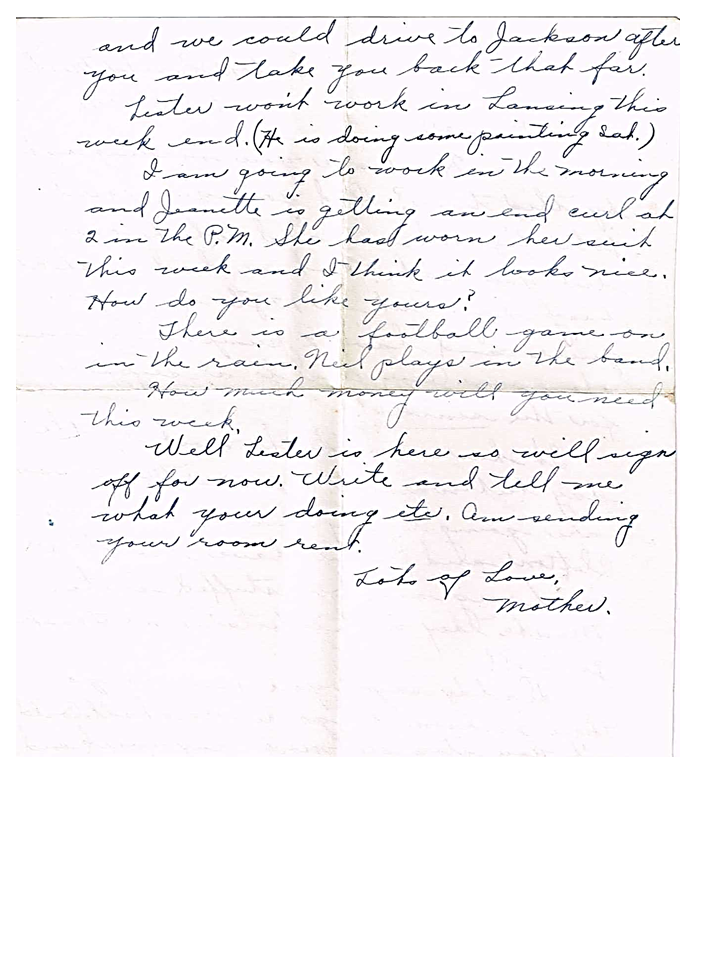 and we could drive to Jackson after
you and take you back that far.
Lester won't work in Lansing this
week end. (He is doing some painting Sat.)
I am going to work in the morning
and Jeanette is getting an end curl at
2 in the P.M. She has worn her suit
this week and I think it looks nice.
How do you like yours?
There is a football game on
in the rain. Neil plays in the band.
How much money will you need
this week.
Well Lester is here so will sign
off for now. Write and tell me
what your doing etc. Am sending
your room rent.
Lots of Love,
Mother.